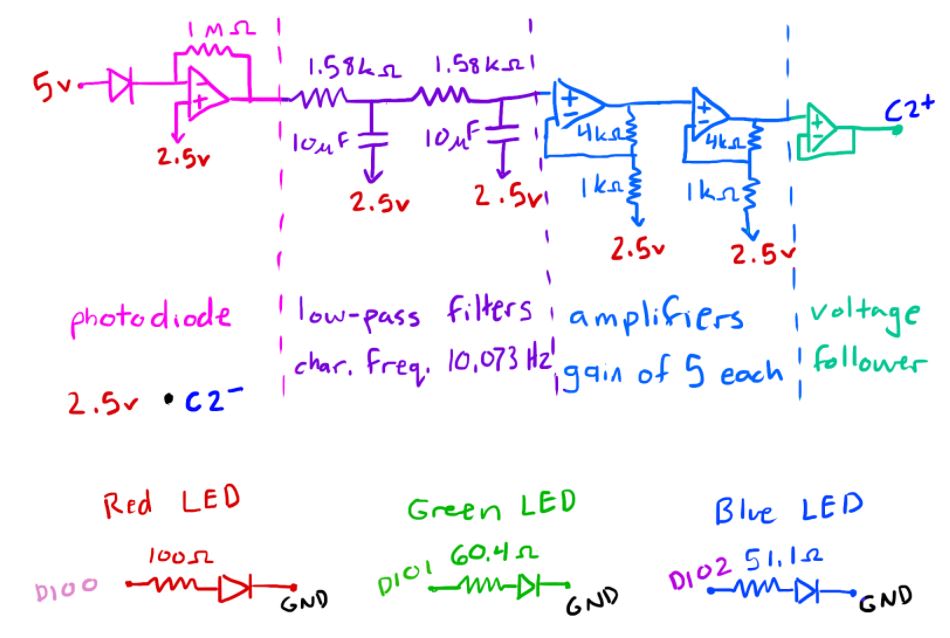 1 MΩ
5v
2.5v
1.58kΩ 1.58kΩ
10μF 10μF
2.5v 2.5v
4kΩ 4kΩ
1kΩ 1kΩ
2.5v 2.5v
C2+
photodiode
low-pass filters
char. freq. 10.073 Hz
amplifiers
gain of 5 each
voltage
follower
2.5v • C2-
Red LED
100Ω
DIO0
GND
Green LED
60.4Ω
DIO1
GND
Blue LED
51.1Ω
DIO2
GND